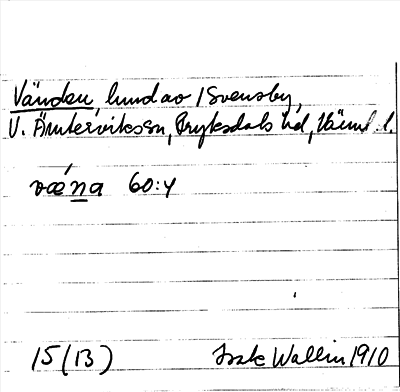 Vändan, lund av / Svensby,
V. Ämterviks sn, Fryksdals hd, Värml. l.
vǽna 60:4
15 (B) Isak Wallin 1910